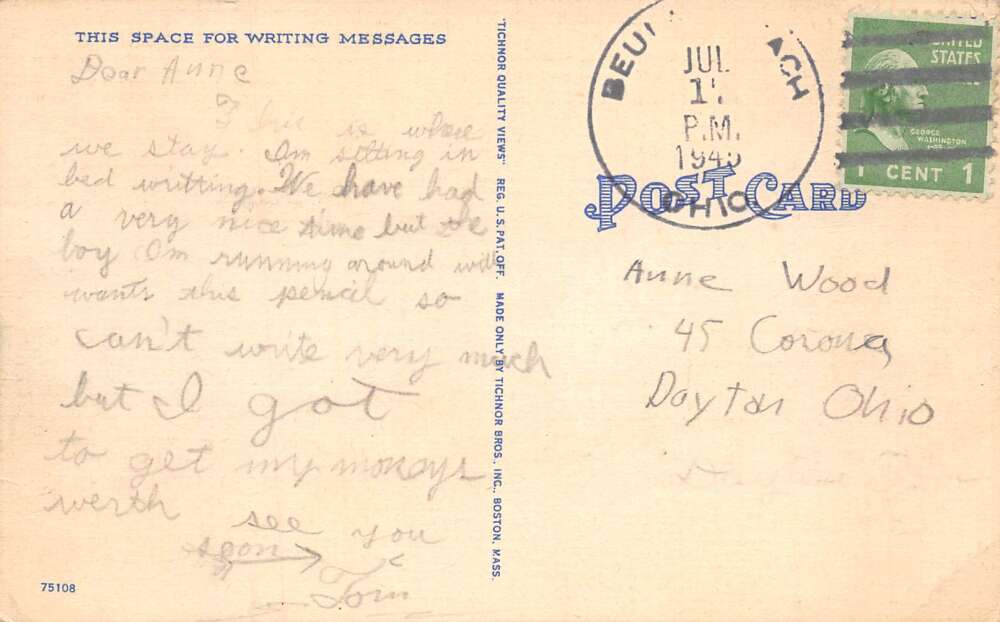 THIS SPACE FOR WRITING MESSAGES
Dear Anne
is where
we stay. Im sitting in
bed writting. We have had
a very nice time but the
boy Im running around with
wants this pencil so
can't write very much
but I got
to get my moneys
worth
see you
soon
Tom
75108
"TICHNOR QUALITY VIEWS" REG. U. S. PAT. OFF. MADE ONLY BY TICHNOR BROS., INC., BOSTON, MASS.
JUL
P.M.
OHIO
UNITED
STATES
GEORGE
WASHINGTON
1 CENT 1
POST CARD
Anne Wood
45 Corona
Dayton Ohio